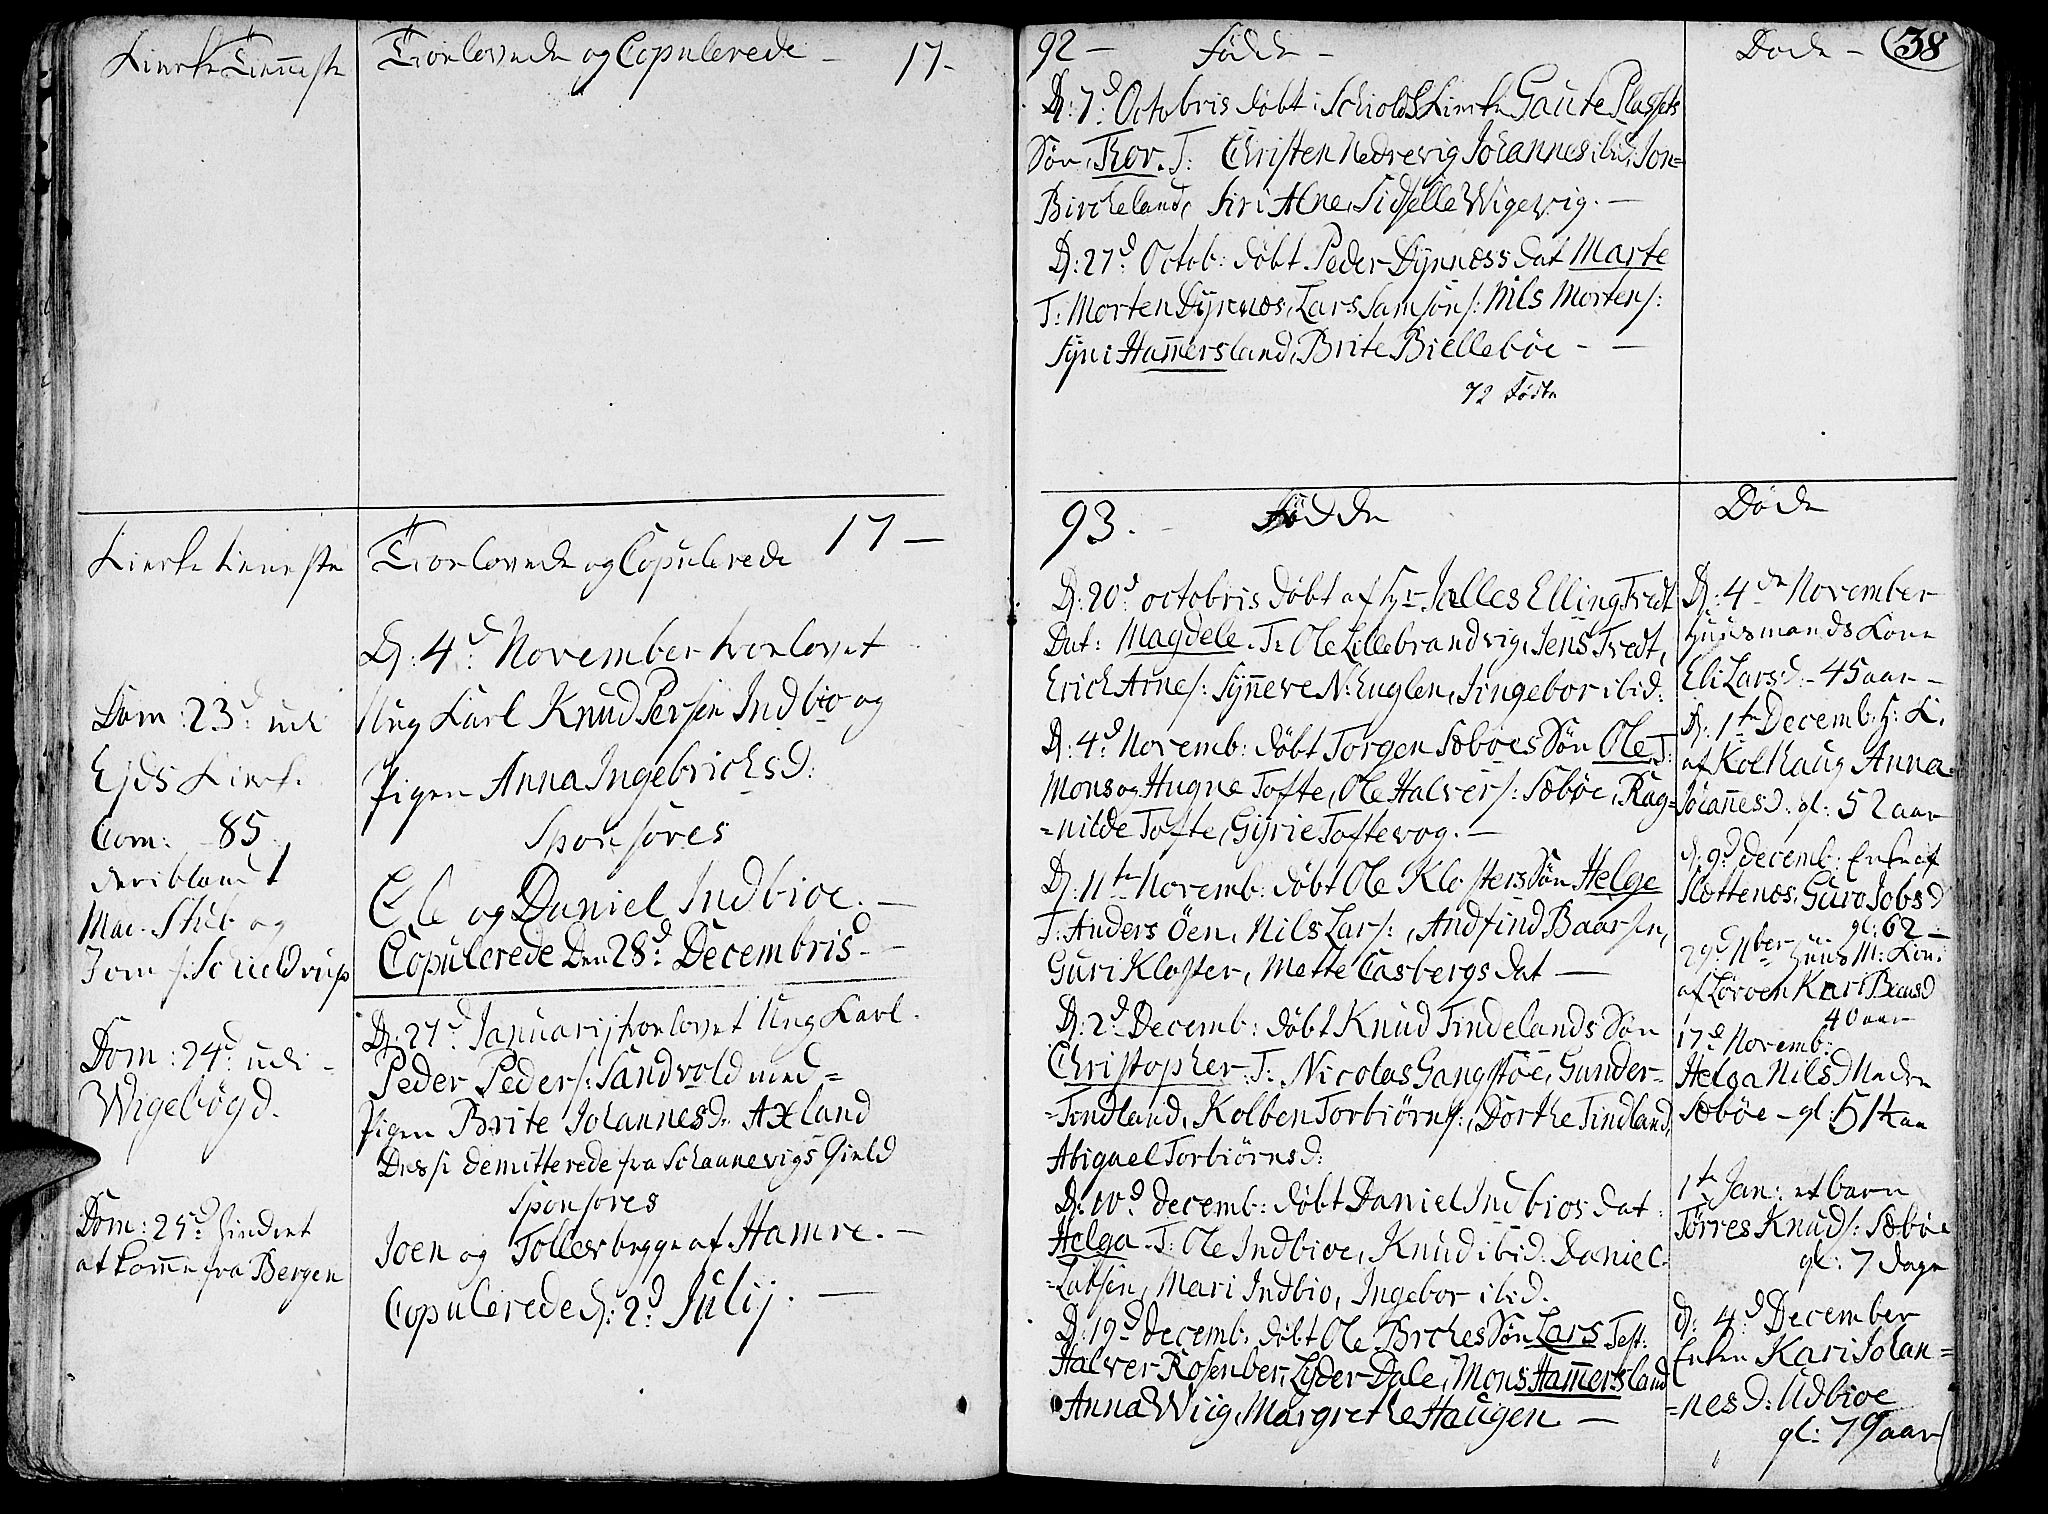 Kierke Tienneste
Troelovede og Copulerede - 17-
92 - Fødde -
Døde - 38
D: 7d Octobris døbt i Schiolds Kirke Gaute Plassets
Søn, Thor. T: Christen Nedrevig Johannes ibid, Jon=
Bircheland, Siri Alne, Sidselle Wigevig. -
D: 27d Octob: døbt Peder Dyrnæss Dat Marte
T: Morten Dyrnæs, Lars Samsøns: Nils Mortens:
Syni Hammersland, Brite Biellebøe - -
72 Fødte
Kierke tieneste
Troelovede og Copulerede 17 -
93. - Fødde
Døde
Dom: 23d udi
Ejds Kirke
Com: 85
deriblandt
Mad. Stub og
Jomfr: Schieldrup
Dom: 24d udi -
Wigebøgd.
Dom: 25d hindret
at komme fra Bergen
D: 4d November troelovet
Ung Karl Knud Persen Indbio og
Pigen Anna Ingebrichsd:
Sponsores
Ole og Daniel Indbioe. -
Copulerede Den 28d Decembris -
D: 27d Januarij troelovet Ung Karl
Peder Peders: Sandvold med=
Pigen Brite Johannesd. Axland
Disse demitterede fra Schaanevigs Gield
Sponsores
Joen og Tollev begge af Hamre. -
Copulerede d: 2d Julij. -
D: 20d octobris døbt af Hr Jelles Elling Tredt
Dat: Magdele. T: Ole Lillebrandvig, Jens Tredt,
Erich Arnes: Synneve N: Euglen, Jingebor ibid:
D: 4d Novemb: døbt Torgen Sæbøes Søn Ole T:
Mons og Hugne Tofte, Ole Halvers: Sæbøe, Rag=
=nilde Tofte, Gyrie Toftevog. -
D: 11te Novemb: døbt Ole Klosters Søn Helge
T: Anders Øen, Nils Lars:, Andfind Baarsen,
Guri Kloster, Mette Casbergs Dat -
D: 2d Decemb: døbt Knud Tindelands Søn
Christopher T: Nicolas Gangstøe, Gunder=
=Tindland, Kolben Torbiørns:, Dorthe Tindland,
Abigael Torbiørnsd:
D: 10d Decemb: døbt Daniel Indbios Dat:
Helga. T: Ole Indbioe, Knud ibid: Daniel
=Larsen, Mari Indbio, Ingebor ibid.
D: 19d Decemb. døbt Ole Birches Søn Lars Test:
Halver Rosenber, Lyder Dale, Mons Hammersland
Anna Wiig, Margrethe Haugen -
D: 4de November
Huusmands Kone
Eli Larsd: - 45 aar -
D: 1te Decemb: H: K.
af Kolhaug Anna=
Johannesd: gl: 52 aar
d: 9d decemb: Enke af
Slottenæs, Guro Jobsd
gl: 62 -
29d 9ber Huus M: Kone
af Lørven Kari
40 aar
17d Novemb:
Helga Nilsd Nedre
Sæbøe - gl: 51½ aar
1te Jan: et barn
Tørres Knuds: Sæbøe
gl: 7 dage
D: 4d December
Enken Kari Johan=
=nesd: Udbioe
gl: 79 aar